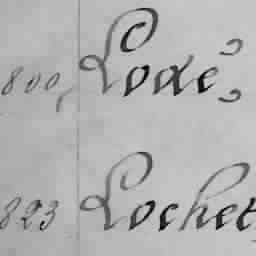 800, Loxé
823 Lochet